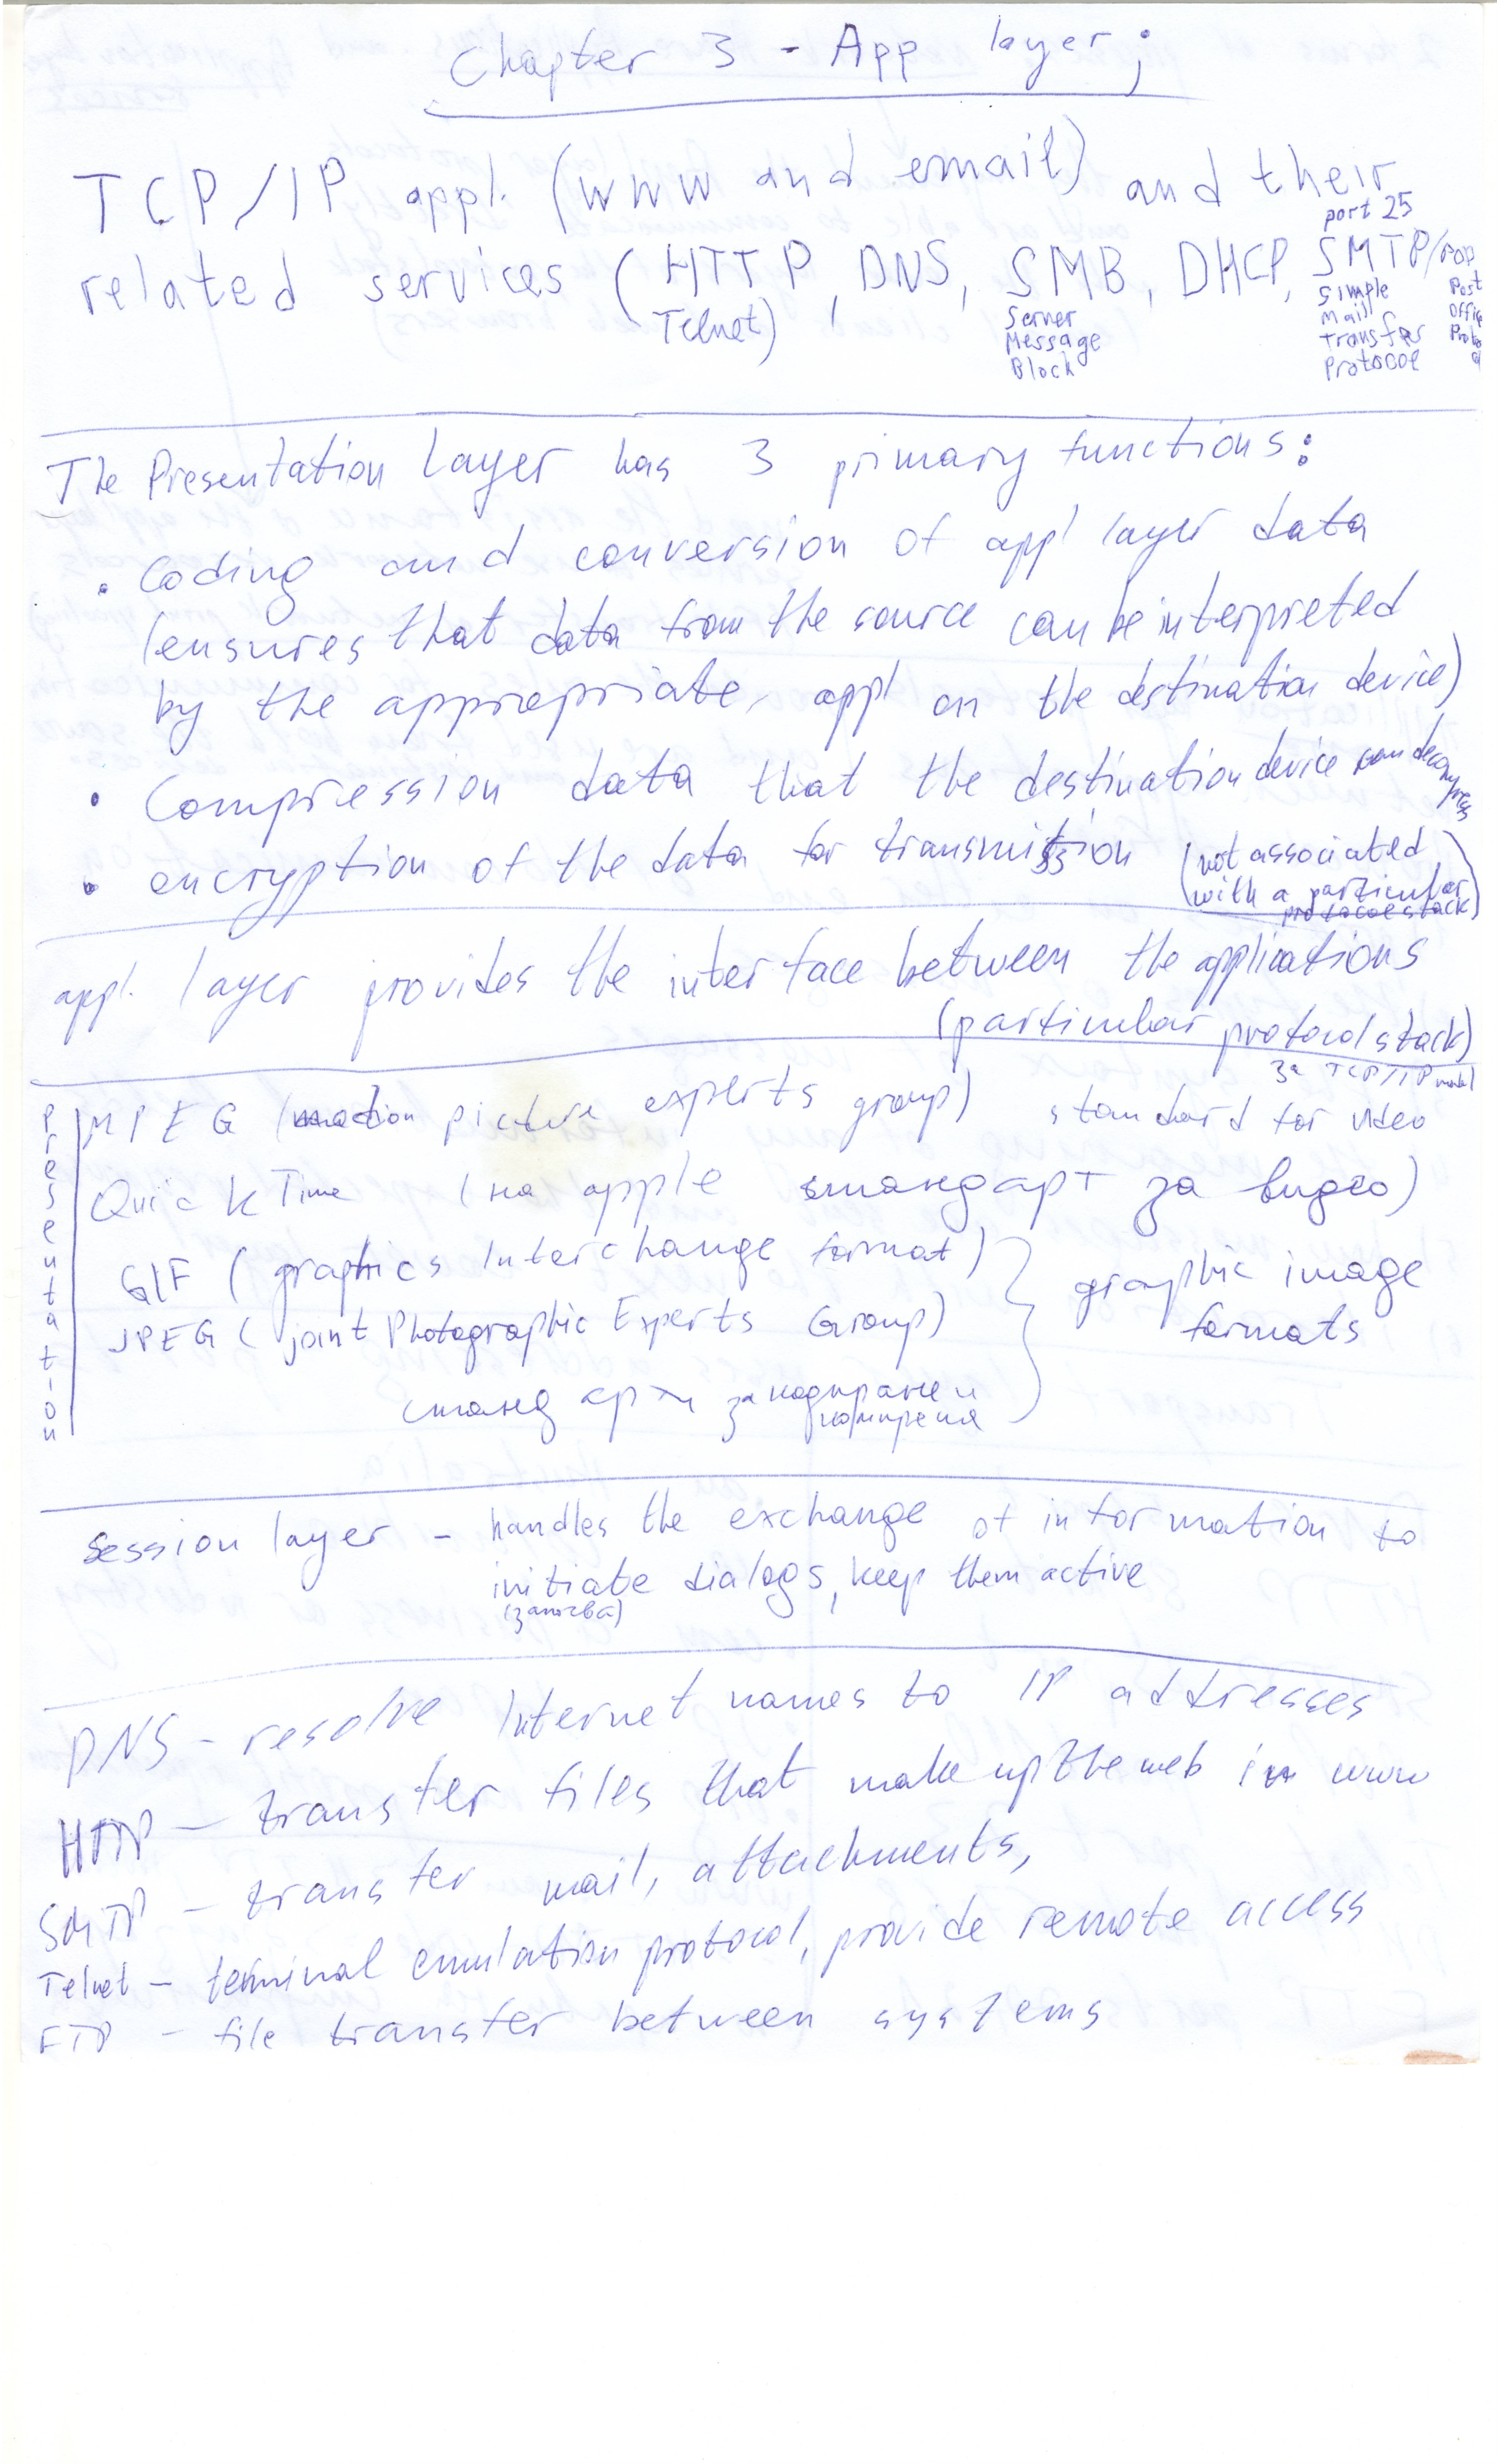 Chapter 3 - App layer;
TCP/IP appl. (www and email) and their
related services (HTTP, DNS, SMB, DHCP, SMTP/POP
port 25
Telnet)
Server
Message
Block
Simple
Mail
Transfer
Protocol
Post
Office
The Presentation Layer has 3 primary functions:
• Coding and conversion of appl layer data
(ensures that data from the source can be interpreted
by the appropriate appl on the destination device)
• Compression data that the destination device can decompress
• encryption of the data for transmission (not associated
with a particular
protocol stack)
appl. layer provides the interface between the applications
(particular protocol stack)
за TCP/IP model
Presentation
MPEG (motion picture experts group) standard for video
QuickTime (на apple стандарт за видео)
GIF (graphics Interchange format)
JPEG (joint Photographic Experts Group)
graphic image
formats
стандарти за кодиране и
компресия
Session layer - handles the exchange of information to
initiate dialogs, keep them active
(започва)
DNS - resolve Internet names to IP addresses
HTTP - transfer files that make up the web in www
SMTP - transfer mail, attachments,
Telnet - terminal emulation protocol, provide remote access
FTP - file transfer between systems